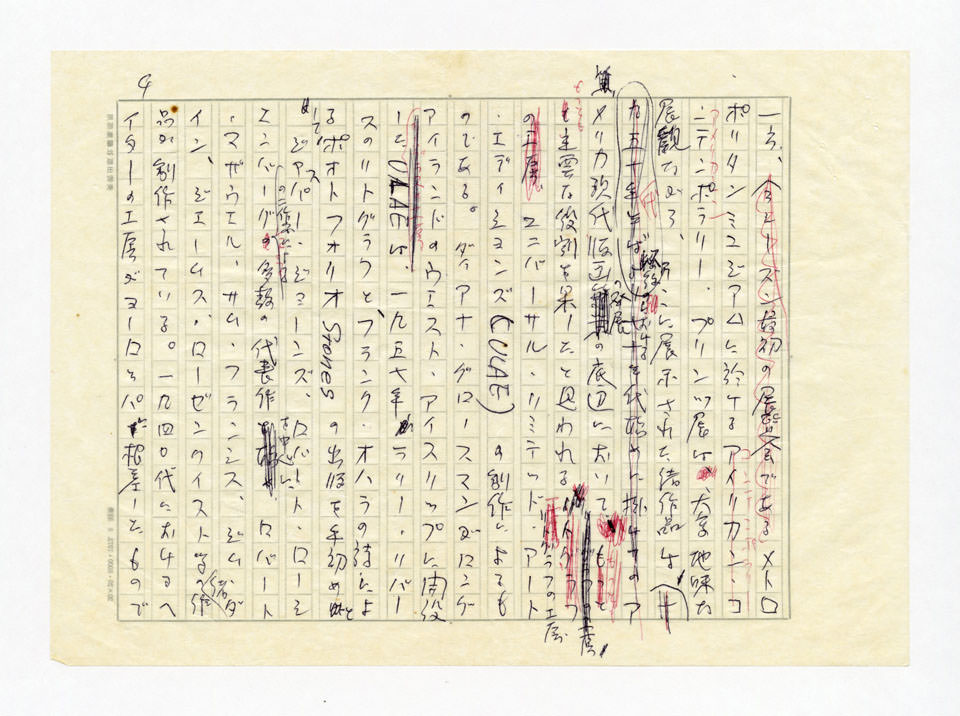 4
一方、今シーズン最初の展覧会であるメトロ
ポリタンミュジアムに於けるアメリカン・コ
ンテンポラリー・プリンツ展は、大変地味な
展観ながら、に展示された諸作品は
九五十年半ば六十年代始めに掛けてのア
メリカ現代版画の底辺において
も主要な役割を果したと思われる
の工房 ユニバーサル・リミテッド・アート
・エディションズ(ULAE)の創作によるも
のである。ダイアナ・グロースマンがロング
アイランドのウエスト・アイスリップに開設
した ULAE は、一九五七年 ラリー・リバー
スのリトグラフとフランク・オハラの詩によ
るポオトフォリオ Stones の出版を手初めと
して ジアスパー・ジョーンズ、ロバート・ローシェ
ンバーグの二作家の多数の代表作を中心に、ロバート
・マザウエル、サム・フランシス、ジム・ダ
イン、ジェームス・ローゼンクイスト等の諸作
品が創作されている。一九四〇代におけるヘ
イターの工房がヨーロッパに根差したもので